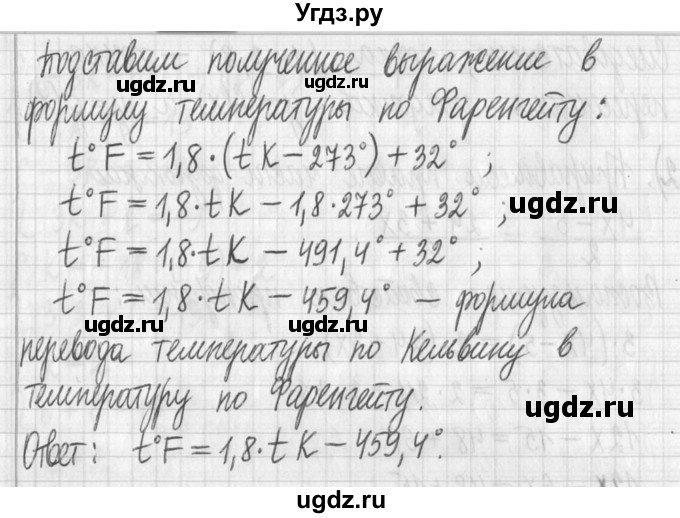 Угдз.ру
Подставим полученное выражение в
ugdz.ru ugdz.ru
формулу температуры по Фаренгейту:
t°F = 1,8·(t K − 273°) + 32° ;
t°F = 1,8·t K − 1,8·273° + 32° ;
ugdz.ru
t°F = 1,8·t K − 491,4° + 32° ;
ugdz.ru
t°F = 1,8·t K − 459,4° — формула
ugdz.ru ugdz.ru
перевода температуры по Кельвину в
температуру по Фаренгейту.
ugdz.ru
Ответ: t°F = 1,8·t K − 459,4°.
ugdz.ru
ugdz.ru